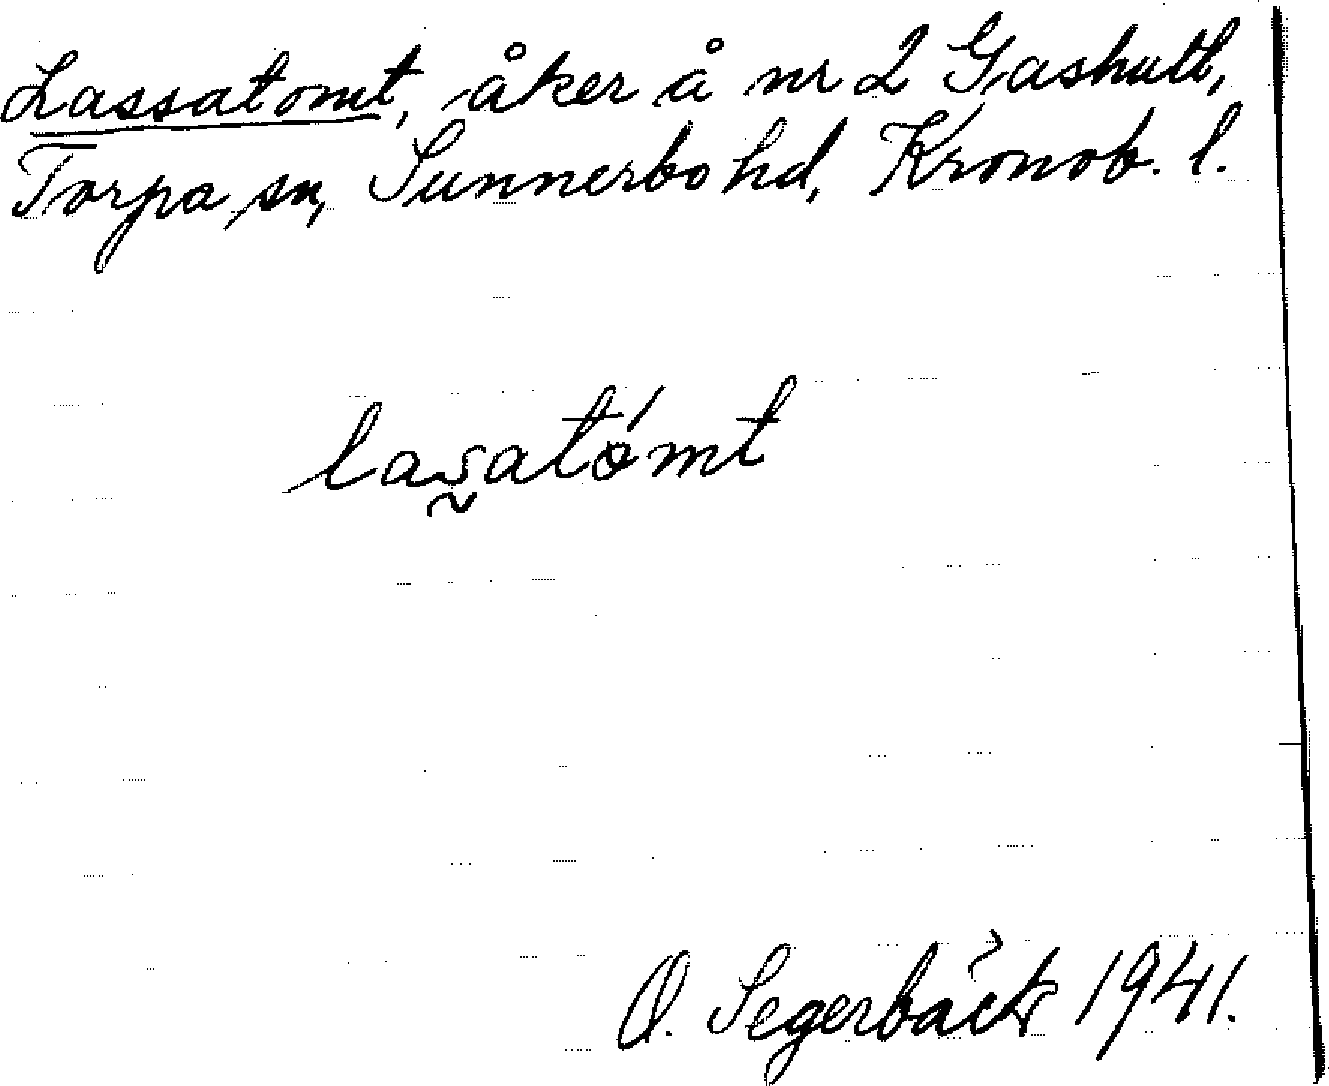 Lassatomt, åker å nr 2 Gashult,
Torpa sn, Sunnerbo hd, Kronob. l.
las̰atómt
O. Segerbäck 1941.